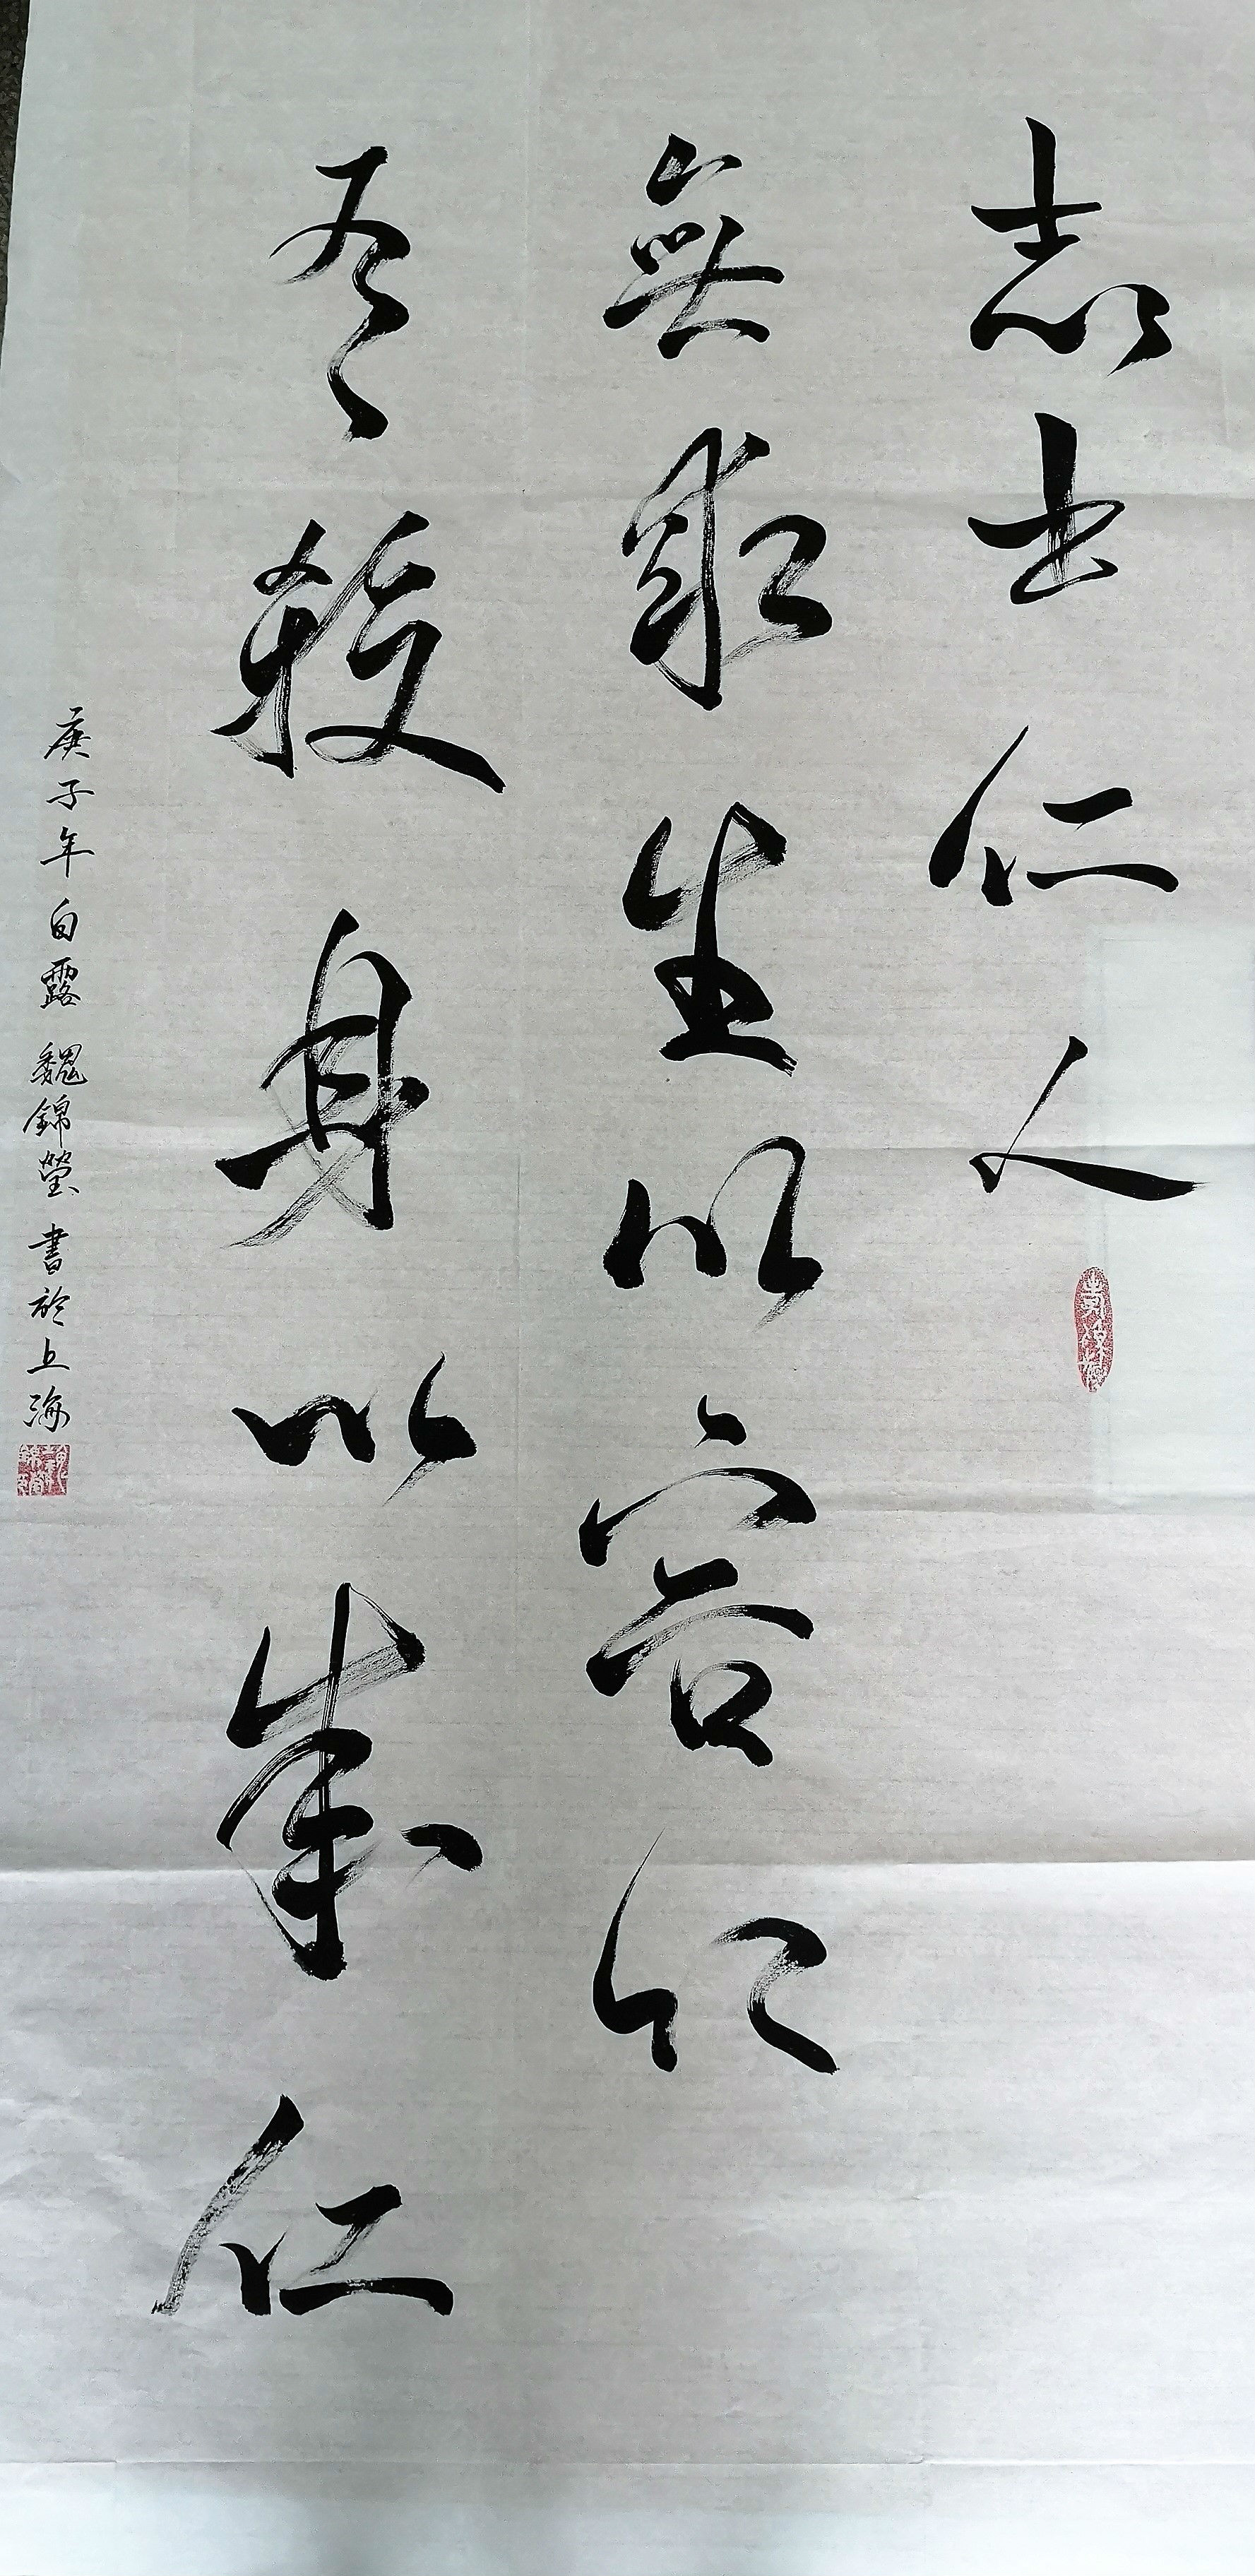 志士仁人
無求生以容仁
有殺身以成仁
庚子年白露 魏錦瑩 書於上海